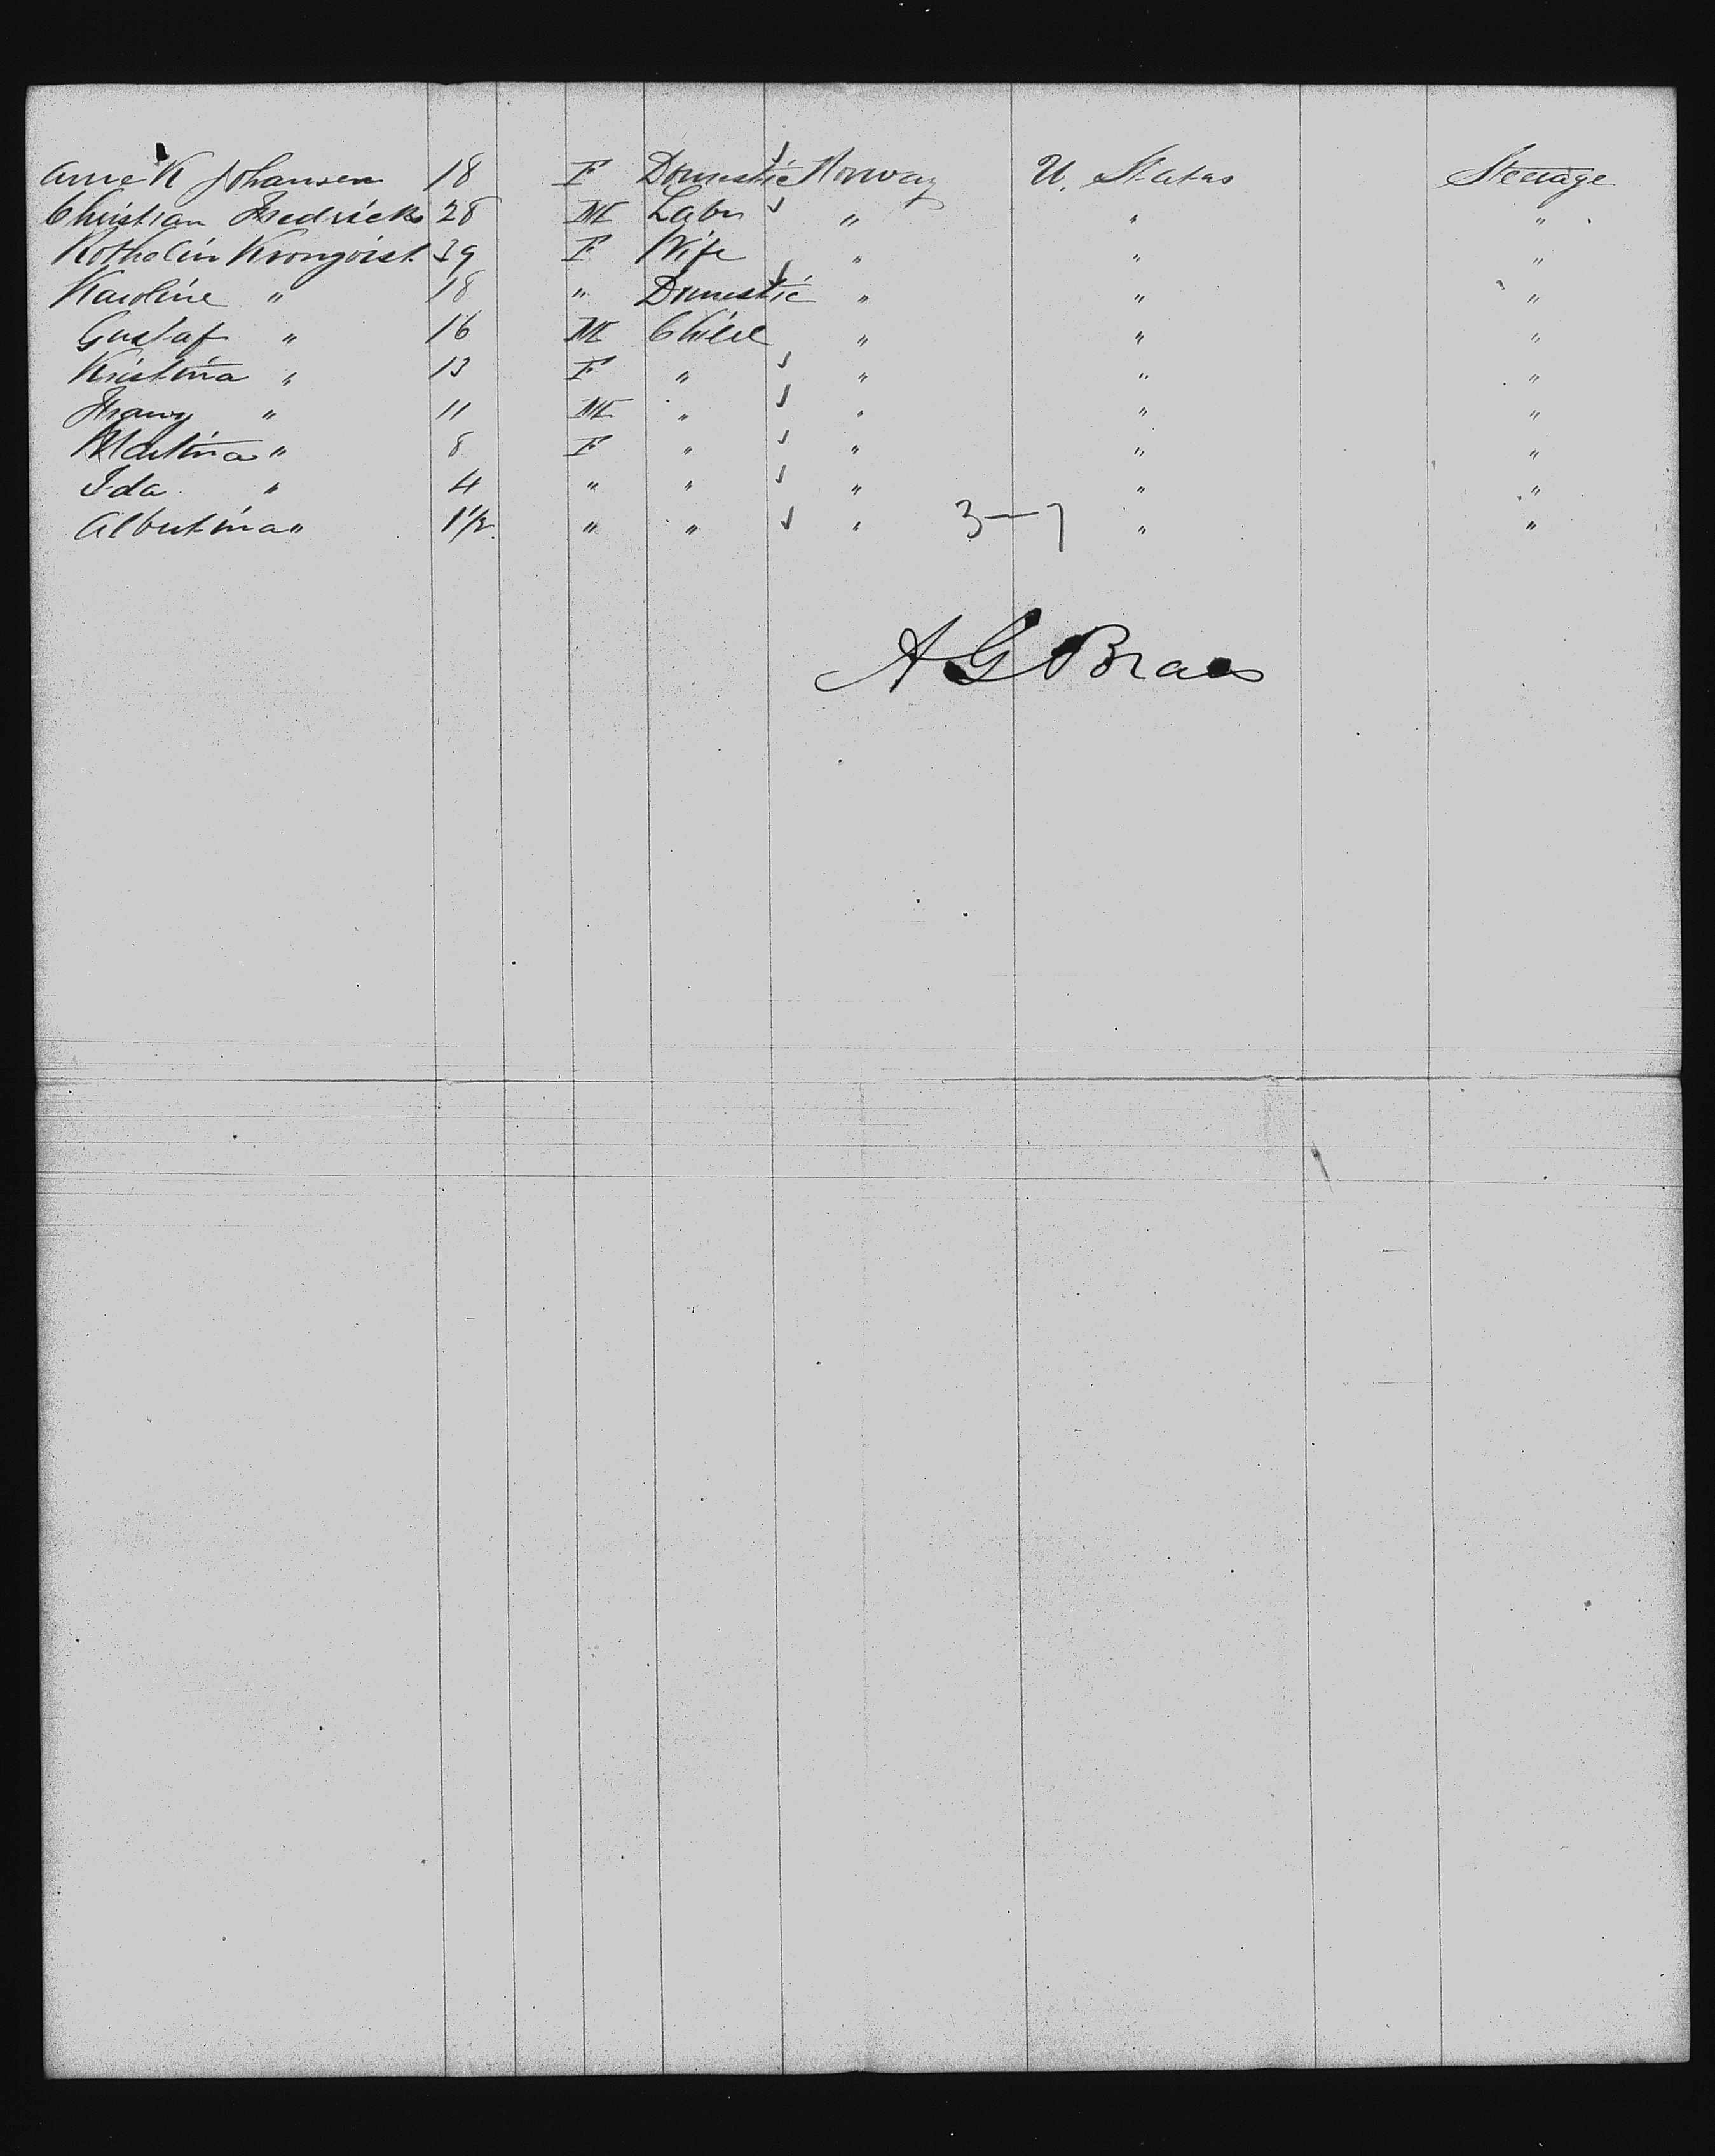 Anne K Johansen 18 F Domestic Norway U. States Steerage
Christian Fredricks 28 M Labr " " "
Kothelin Kronqvist 39 F Wife " " "
Karoline " 18 " Domestic " " "
Gustaf " 16 M Child " " "
Kristina " 13 F " " " "
Franz " 11 M " " " "
Martina " 8 F " " " "
Ida " 4 " " " " "
Albertina " 1 1/2 " " " " "
3—7
A G Braes